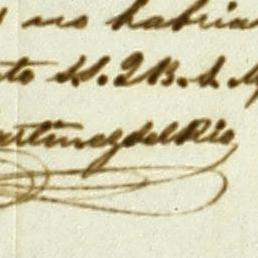 no habria
to S.S. Q B. S. M
artinez del Rio